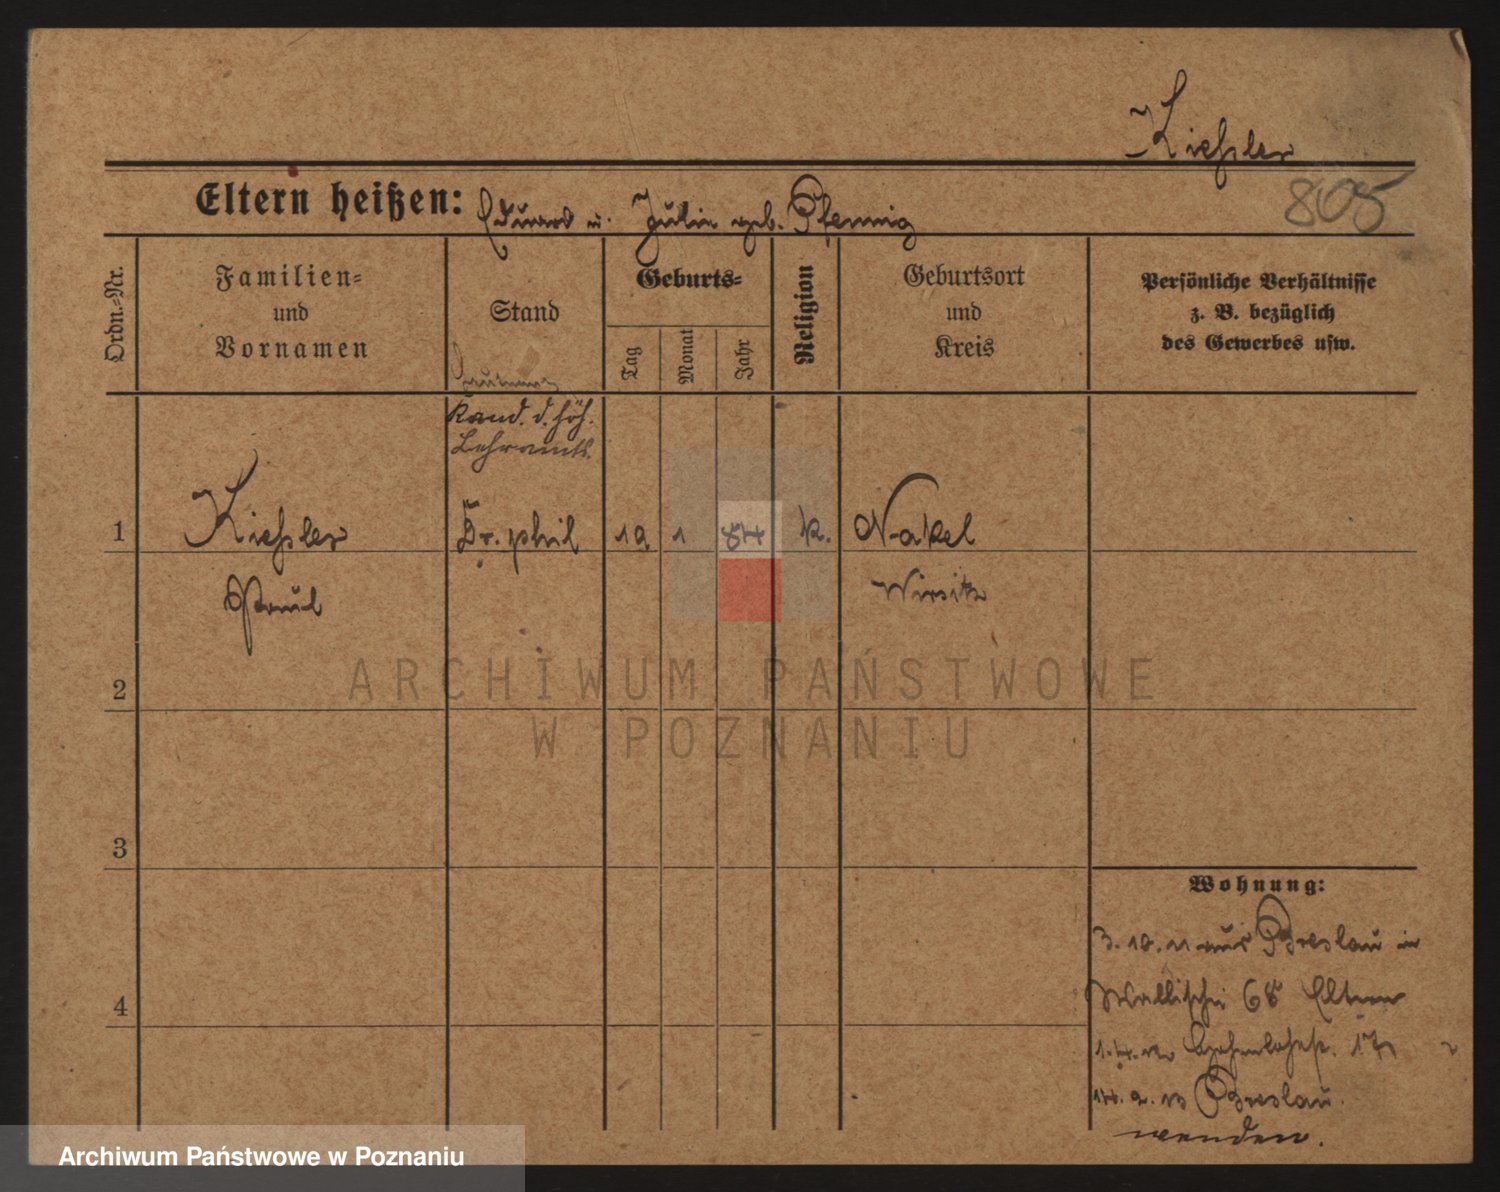 Kießler
805
Eltern heißen: Eduard u. Julie geb. Pfennig
Ordn.-Nr.
Familien-
und
Vornamen
Stand
Geburts-
Tag
Monat
Jahr
Religion
Geburtsort
und
Kreis
Persönliche Verhältnisse
z. B. bezüglich
des Gewerbes usw.
Kand. d. höh.
Lehramts.
1 Kießler Dr. phil 19 1 84 k. Nakel
Paul Wirsitz
2
3
4
Wohnung:
3. 10. 11 aus Breslau in
Wallischei 68 Eltern
Hohenlohestr.
Breslau.
wenden.
ARCHIWUM PAŃSTWOWE
W POZNANIU
Archiwum Państwowe w Poznaniu